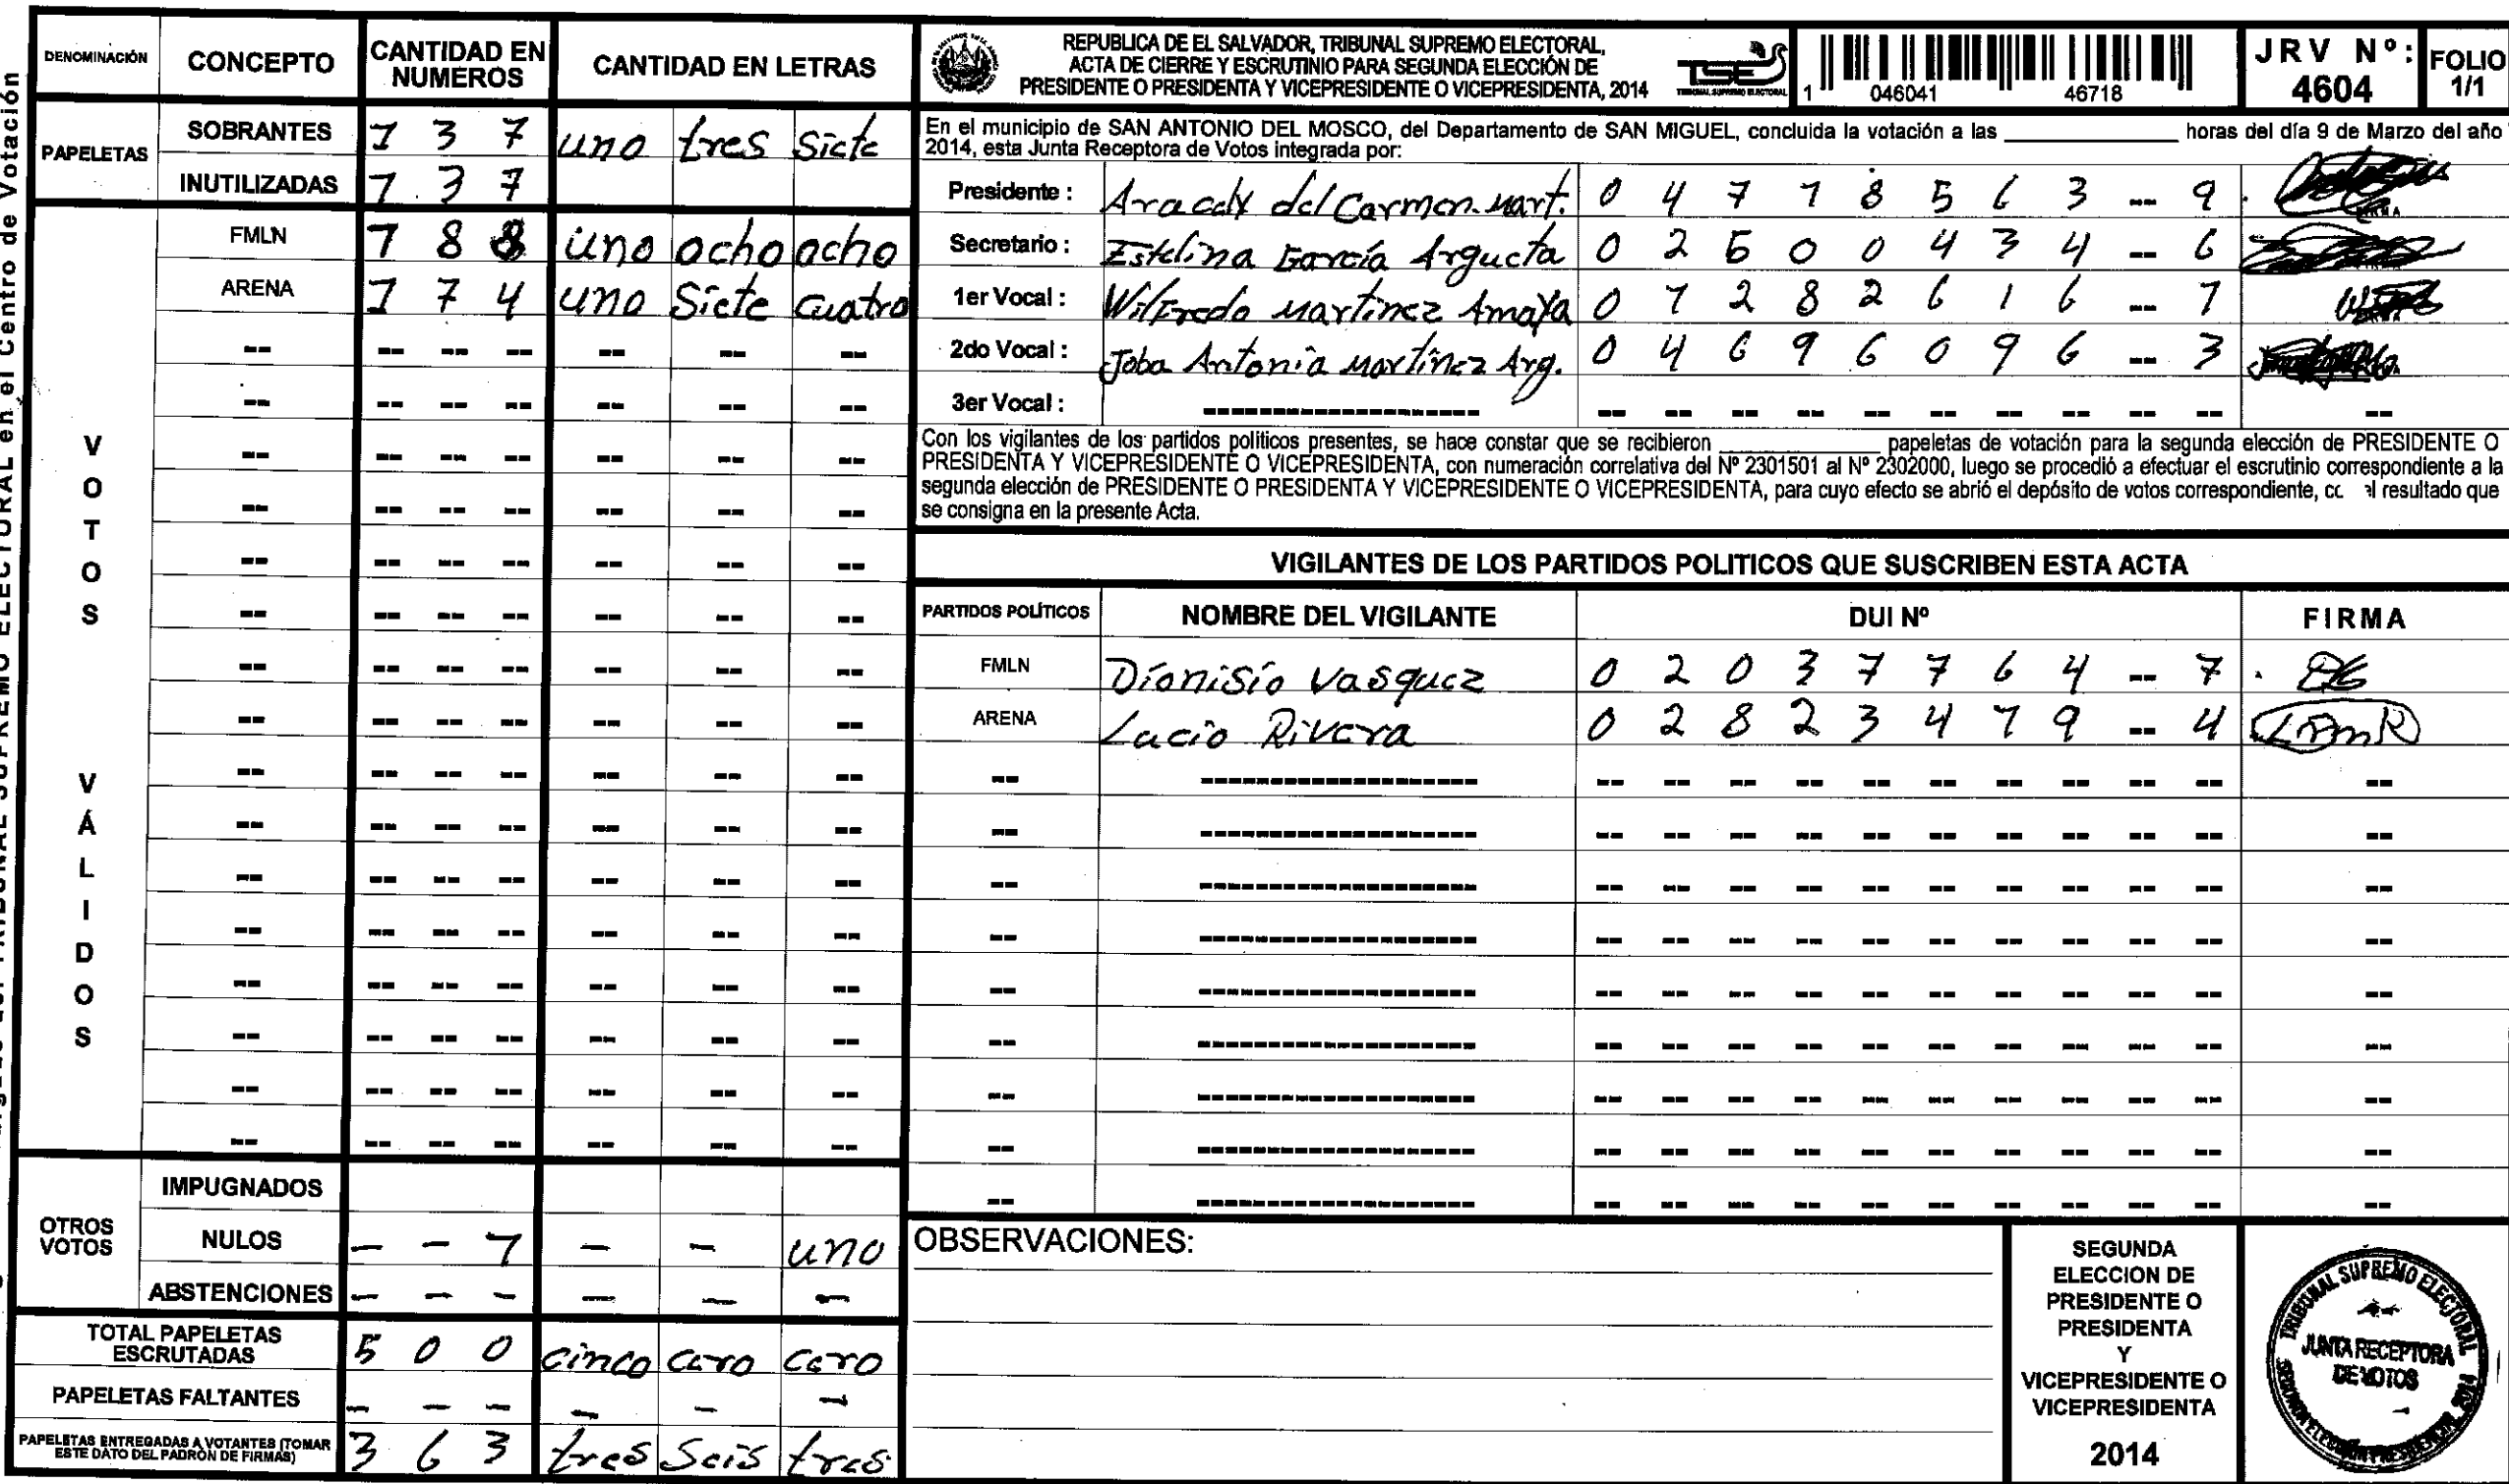 DENOMINACIÓN CONCEPTO CANTIDAD EN NUMEROS CANTIDAD EN LETRAS
PAPELETAS
SOBRANTES 1 3 7 uno tres siete
INUTILIZADAS 1 3 7
VOTOS VÁLIDOS
FMLN 1 8 8 uno ocho ocho
ARENA 1 7 4 uno siete cuatro
OTROS VOTOS
IMPUGNADOS
NULOS - - 1 - - uno
ABSTENCIONES - - - - - -
TOTAL PAPELETAS ESCRUTADAS 5 0 0 cinco cero cero
PAPELETAS FALTANTES - - - - - -
PAPELETAS ENTREGADAS A VOTANTES (TOMAR ESTE DATO DEL PADRÓN DE FIRMAS) 3 6 3 tres seis tres
REPUBLICA DE EL SALVADOR, TRIBUNAL SUPREMO ELECTORAL,
ACTA DE CIERRE Y ESCRUTINIO PARA SEGUNDA ELECCIÓN DE
PRESIDENTE O PRESIDENTA Y VICEPRESIDENTE O VICEPRESIDENTA, 2014
TSE
TRIBUNAL SUPREMO ELECTORAL
1 046041 46718
JRV Nº: 4604
FOLIO 1/1
En el municipio de SAN ANTONIO DEL MOSCO, del Departamento de SAN MIGUEL, concluida la votación a las ____________ horas del día 9 de Marzo del año
2014, esta Junta Receptora de Votos integrada por:
Presidente : Aracely del Carmen Mart. 0 4 7 1 8 5 6 3 -- 9
Secretario : Estelina García Argueta 0 2 5 0 0 4 3 4 -- 6
1er Vocal : Wilfredo Martinez Amaya 0 1 2 8 2 6 1 6 -- 1
2do Vocal : Joba Antonia Martínez Arg. 0 4 6 9 6 0 9 6 -- 3
3er Vocal :
Con los vigilantes de los partidos políticos presentes, se hace constar que se recibieron ____________ papeletas de votación para la segunda elección de PRESIDENTE O
PRESIDENTA Y VICEPRESIDENTE O VICEPRESIDENTA, con numeración correlativa del Nº 2301501 al Nº 2302000, luego se procedió a efectuar el escrutinio correspondiente a la
segunda elección de PRESIDENTE O PRESIDENTA Y VICEPRESIDENTE O VICEPRESIDENTA, para cuyo efecto se abrió el depósito de votos correspondiente, resultado que
se consigna en la presente Acta.
VIGILANTES DE LOS PARTIDOS POLITICOS QUE SUSCRIBEN ESTA ACTA
PARTIDOS POLÍTICOS NOMBRE DEL VIGILANTE DUI Nº FIRMA
FMLN Dionisio Vasquez 0 2 0 3 7 7 6 4 -- 7
ARENA Lucio Rivera 0 2 8 2 3 4 1 9 -- 4
OBSERVACIONES:
SEGUNDA
ELECCION DE
PRESIDENTE O
PRESIDENTA
Y
VICEPRESIDENTE O
VICEPRESIDENTA
2014
TRIBUNAL SUPREMO ELECTORAL
JUNTA RECEPTORA
DE VOTOS
SEGUNDA ELECCIÓN PRESIDENCIAL 2014